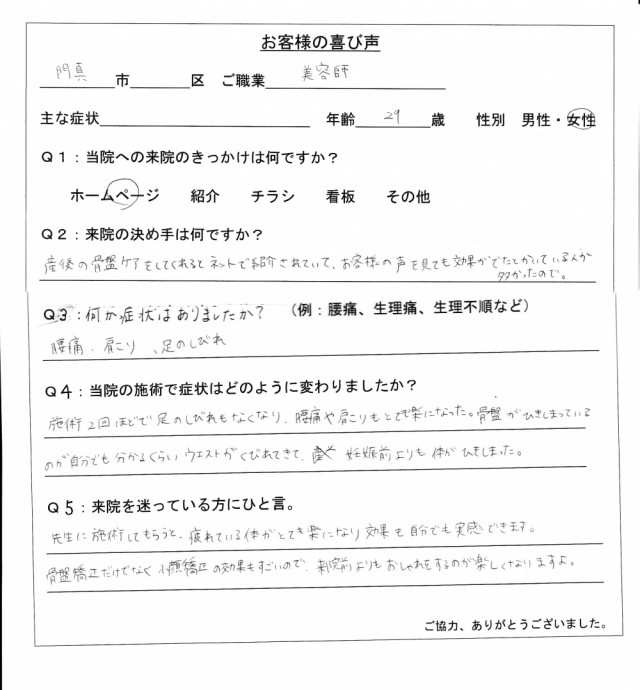 お客様の喜び声
門真市 区 ご職業 美容師
主な症状 年齢 29 歳 性別 男性・女性
Q1:当院への来院のきっかけは何ですか?
ホームページ 紹介 チラシ 看板 その他
Q2:来院の決め手は何ですか?
産後の骨盤ケアをしてくれるとネットで紹介されていて、お客様の声を見ても効果がでたとかいている人が
多かったので。
Q3:何か症状はありましたか? (例:腰痛、生理痛、生理不順など)
腰痛、肩こり、足のしびれ
Q4:当院の施術で症状はどのように変わりましたか?
施術2回ほどで足のしびれもなくなり、腰痛や肩こりもとても楽になった。骨盤がひきしまっている
のが自分でも分かるくらいウエストがくびれてきて、妊娠前よりも体がひきしました。
Q5:来院を迷っている方にひと言。
先生に施術してもらうと、疲れている体がとても楽になり効果も自分でも実感できます。
骨盤矯正だけでなく小顔矯正の効果もすごいので、来院前よりもおしゃれをするのが楽しくなりますよ。
ご協力、ありがとうございました。